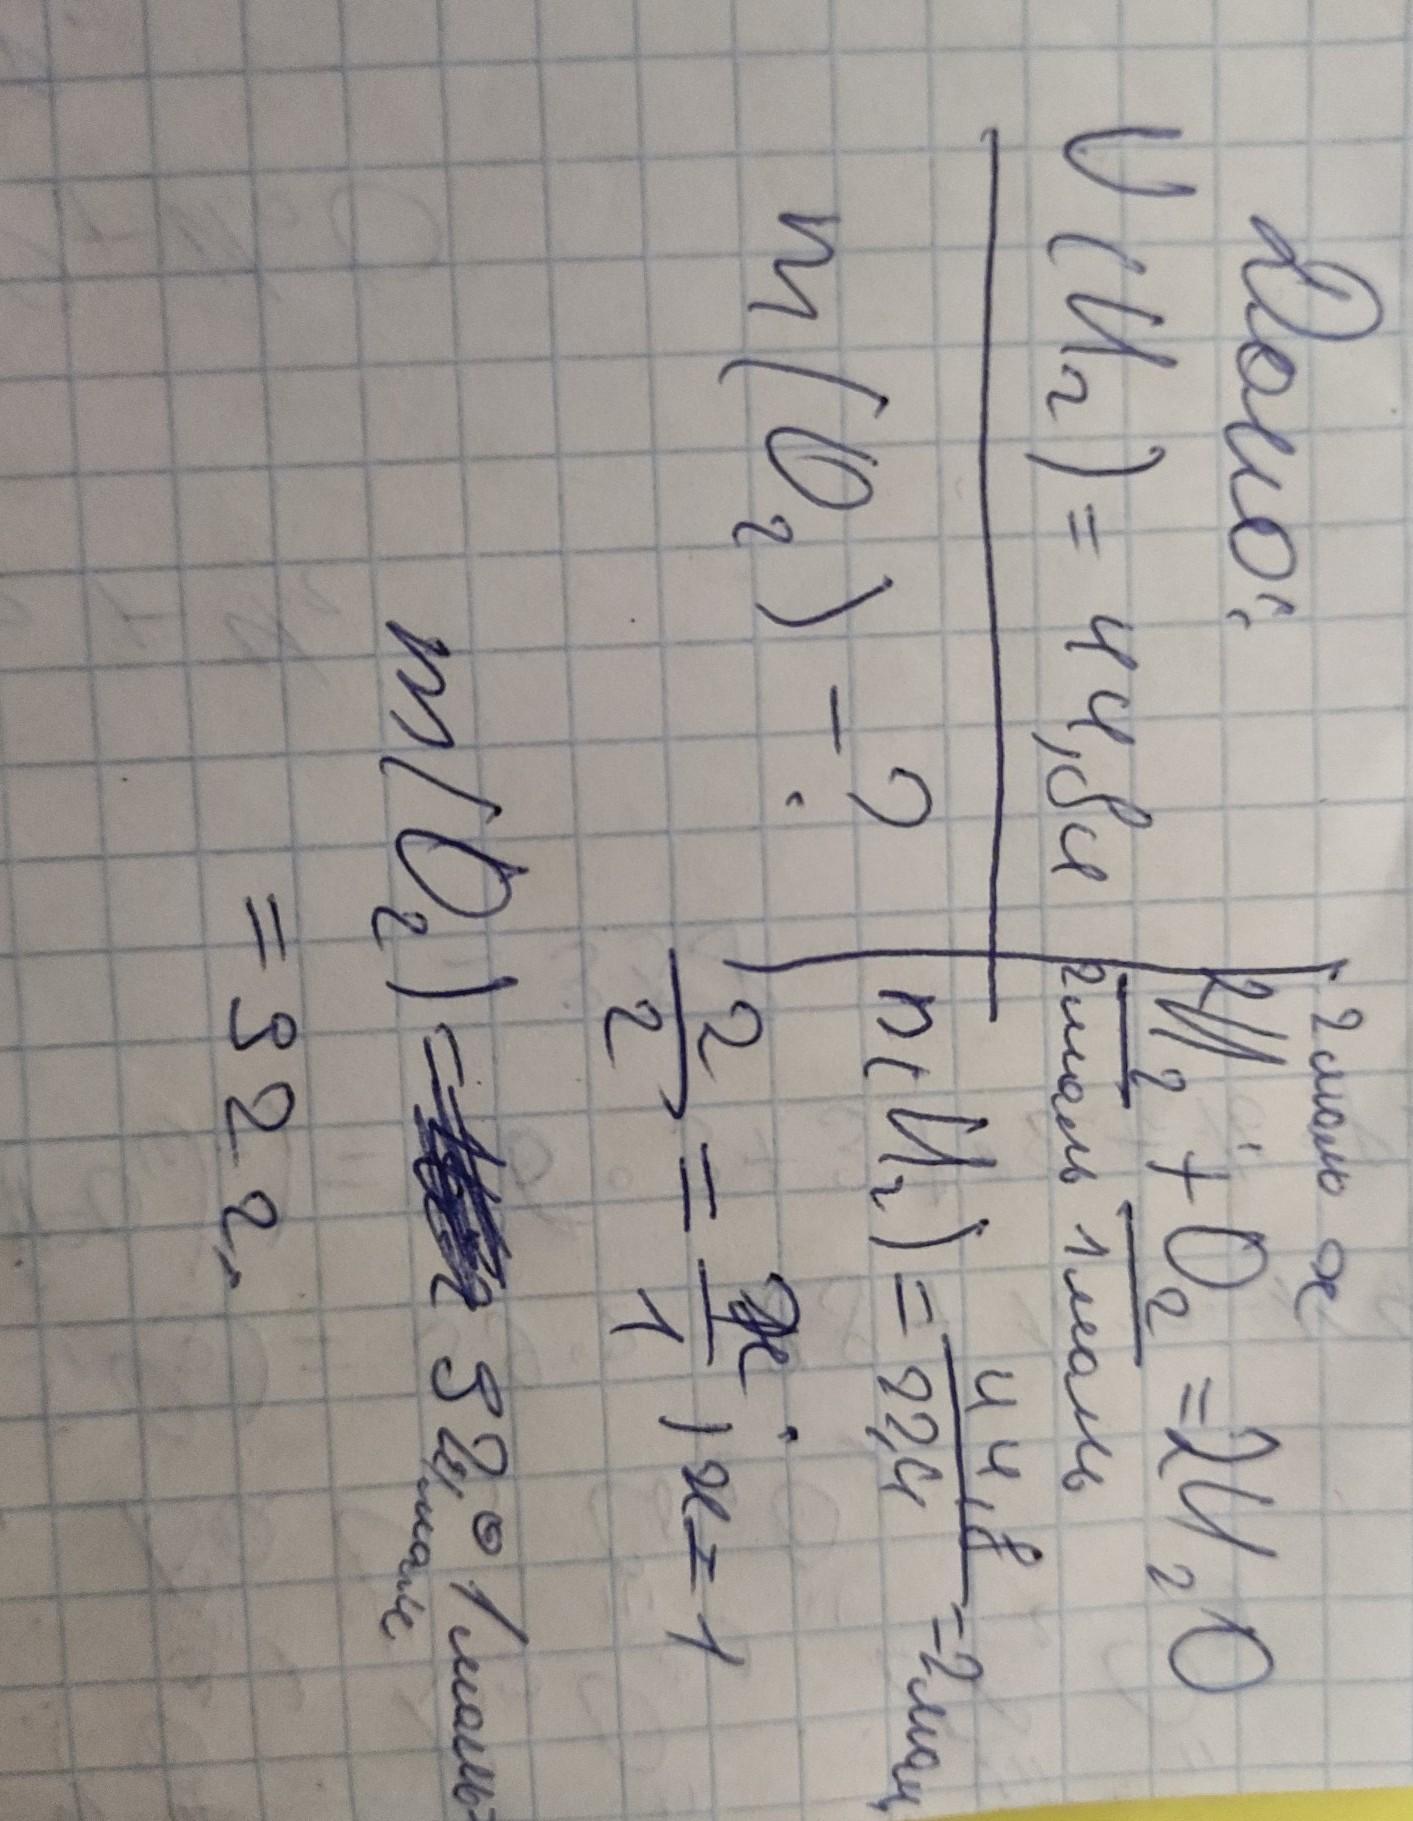 Дано:
V(H2) = 44,8л
m(O2) - ?
2моль x
2H2 + O2 = 2H2O
2моль 1моль
n(H2) = 44,8 / 22,4 = 2моль
2/2 = x/1, x = 1
m(O2) = 32 г/моль · 1моль =
= 32 г.